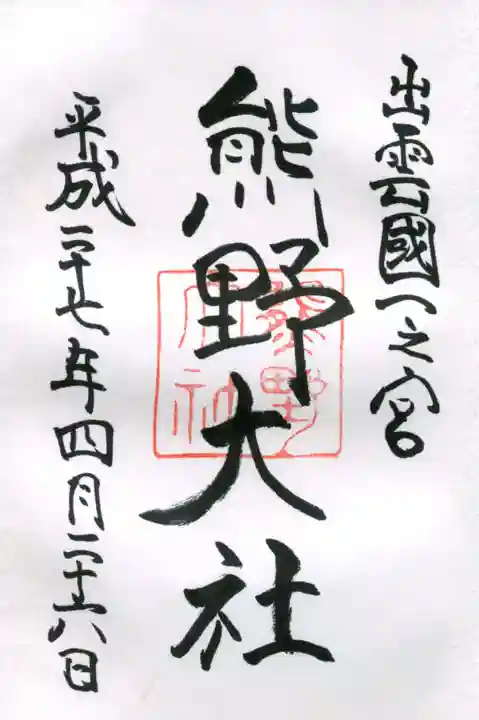 出雲國一之宮
熊野大社
平成二十七年四月二十六日
熊野
大神